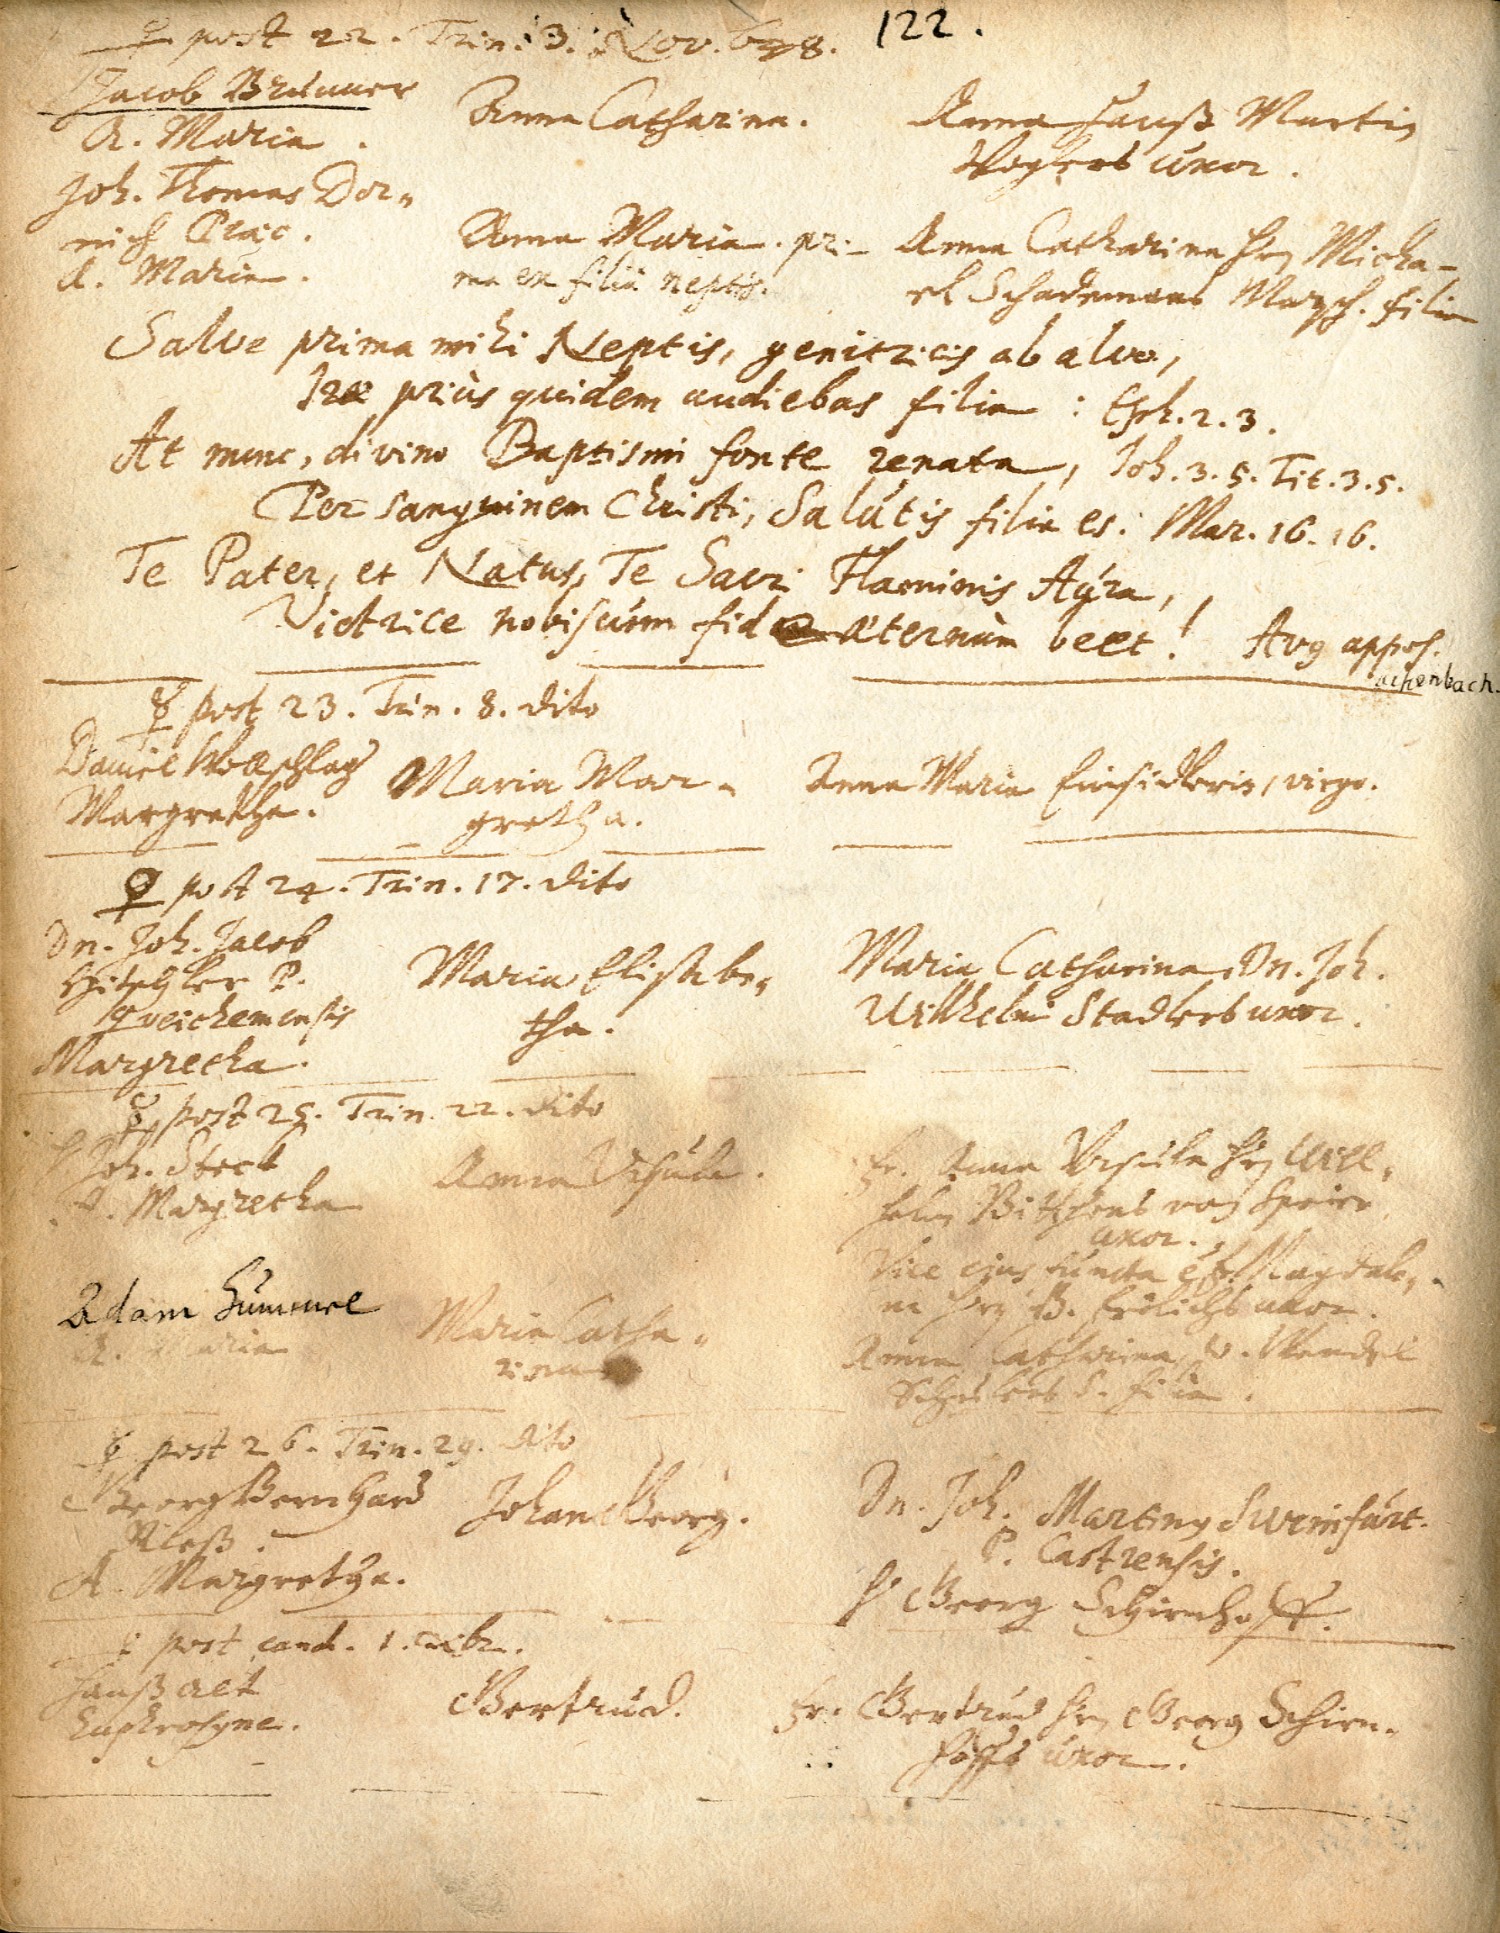 122.
♀ post 22. Trin. 3. Nov.
Jacob Brunner
A. Maria.
Anna Catharina.
Anna Hanß Martin
uxor.
Joh. Thomas Dor-
nich Praec.
A. Maria.
Anna Maria. pri-
ma ex filiâ neptis.
Anna Catharina Hrn Micha-
el Schademans filia
Salve prima mihi Neptis, genitricis ab alvo,
Irae priùs quidem audiebas filia: Eph. 2. 3.
At nunc, divino Baptismi fonte renata, Joh. 3. 5. Tit. 3. 5.
Per sanguinem Christi, Salutis filia es. Mar. 16. 16.
Te Pater, et Natus, Te Sacri Flaminis Aura,
Victrice nobiscum fide æternùm beet! Avg appos.
achenbach.
☿ post 23. Trin. 8. dito
Daniel Wollschlag
Margretha.
Maria Mar-
gretha.
Anna Maria Einsidlerin, virgo.
♀ post 24. Trin. 17. dito
Dn. Joh. Jacob
Hitschler P.
Queichemensis
Margretha.
Maria Elisabe-
tha.
Maria Catharina, Dn. Joh.
Wilhelm Stadlers uxor.
☿ post 25. Trin. 22. dito
H Joh. Steck
A. Margretha
Anna Ursula.
Fr. Anna Ursula Hrn Wil-
helm von Speier
uxor.
Vice ejus functa est Magdale-
na Hrn B. Frölichs uxor.
Adam Hummel
A. Maria
Maria Catha-
rina
Anna Catharina, Wendel
Schulers filia.
☿ post 26. Trin. 29. dito
Georg Bernhard
A. Margretha.
Johan Georg.
Dn. Joh. Martiny Sweinfurt.
P. Castrensis.
H Georg Schirnhoff.
post 1. Xbr.
Hanß Alt
Euphrosyne.
Gertrud.
Fr. Gertrud Hrn Georg Schirn-
hoffs uxor.